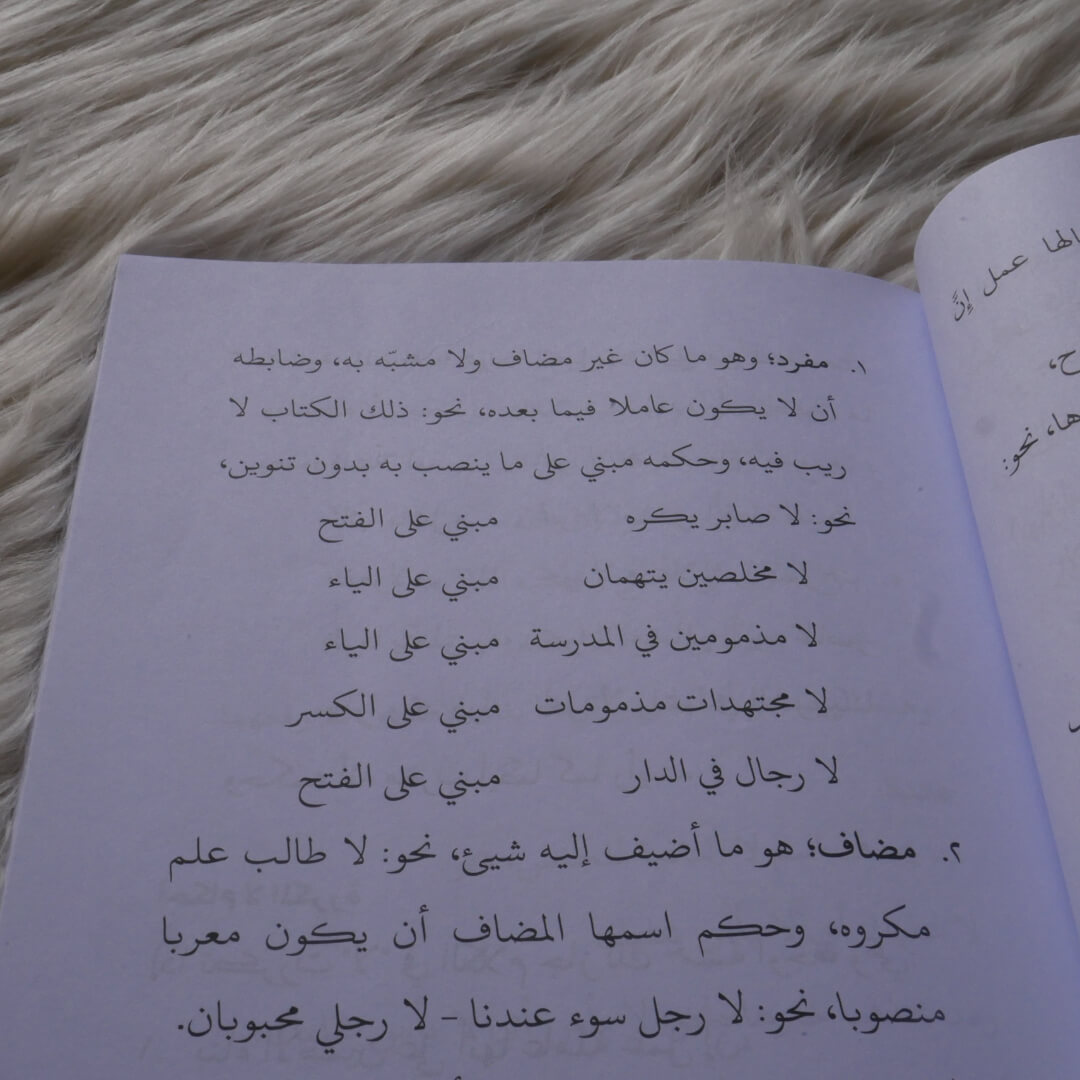 الها عمل إنَّ
ح،
ها، نحو:
١. مفرد؛ وهو ما كان غير مضاف ولا مشبّه به، وضابطه
أن لا يكون عاملا فيما بعده، نحو: ذلك الكتاب لا
ريب فيه، وحكمه مبني على ما ينصب به بدون تنوين،
نحو: لا صابر يكره مبني على الفتح
لا مخلصين يتهمان مبني على الياء
لا مذمومين في المدرسة مبني على الياء
لا مجتهدات مذمومات مبني على الكسر
لا رجال في الدار مبني على الفتح
٢. مضاف؛ هو ما أضيف إليه شيئ، نحو: لا طالب علم
مكروه، وحكم اسمها المضاف أن يكون معربا
منصوبا، نحو: لا رجل سوء عندنا – لا رجلي محبوبان.